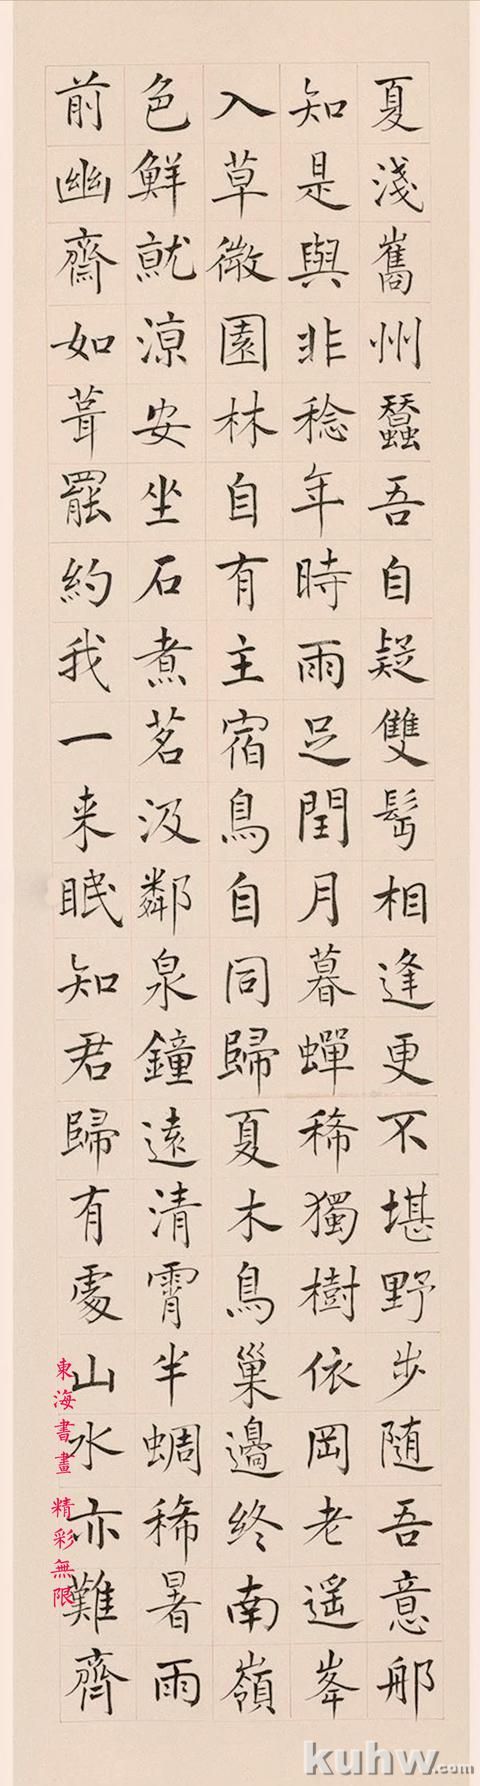 夏淺巂州蠶吾自疑雙髩相逢更不堪野步随吾意那
知是與非稔年時雨足閏月暮蟬稀獨樹依岡老遥峯
入草微園林自有主宿鳥自同歸夏木鳥巢邊終南嶺
色鮮就涼安坐石煮茗汲鄰泉鐘遠清霄半蜩稀暑雨
前幽齋如葺罷約我一来眠知君歸有處山水亦難齊
東海書畫 精彩無限
kuhw.com